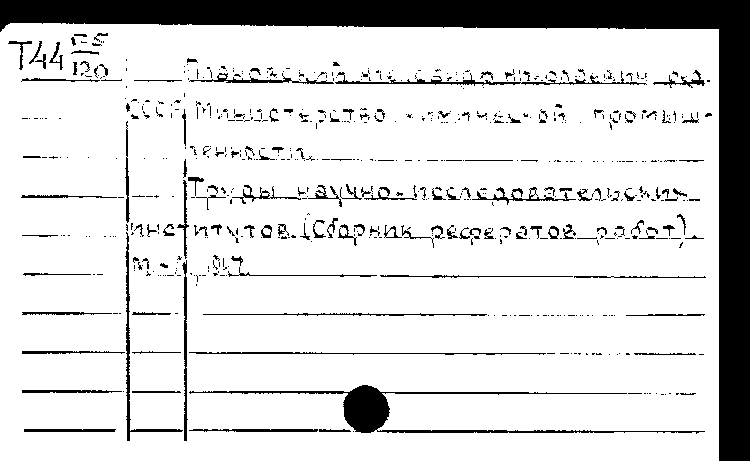 Т44 Г-5
120
Плановский Александр Николаевич ред.
СССР. Министерство химической промыш-
ленности.
Труды научно-исследовательских
институтов. (Сборник рефератов работ).
М.-Л., 1947.